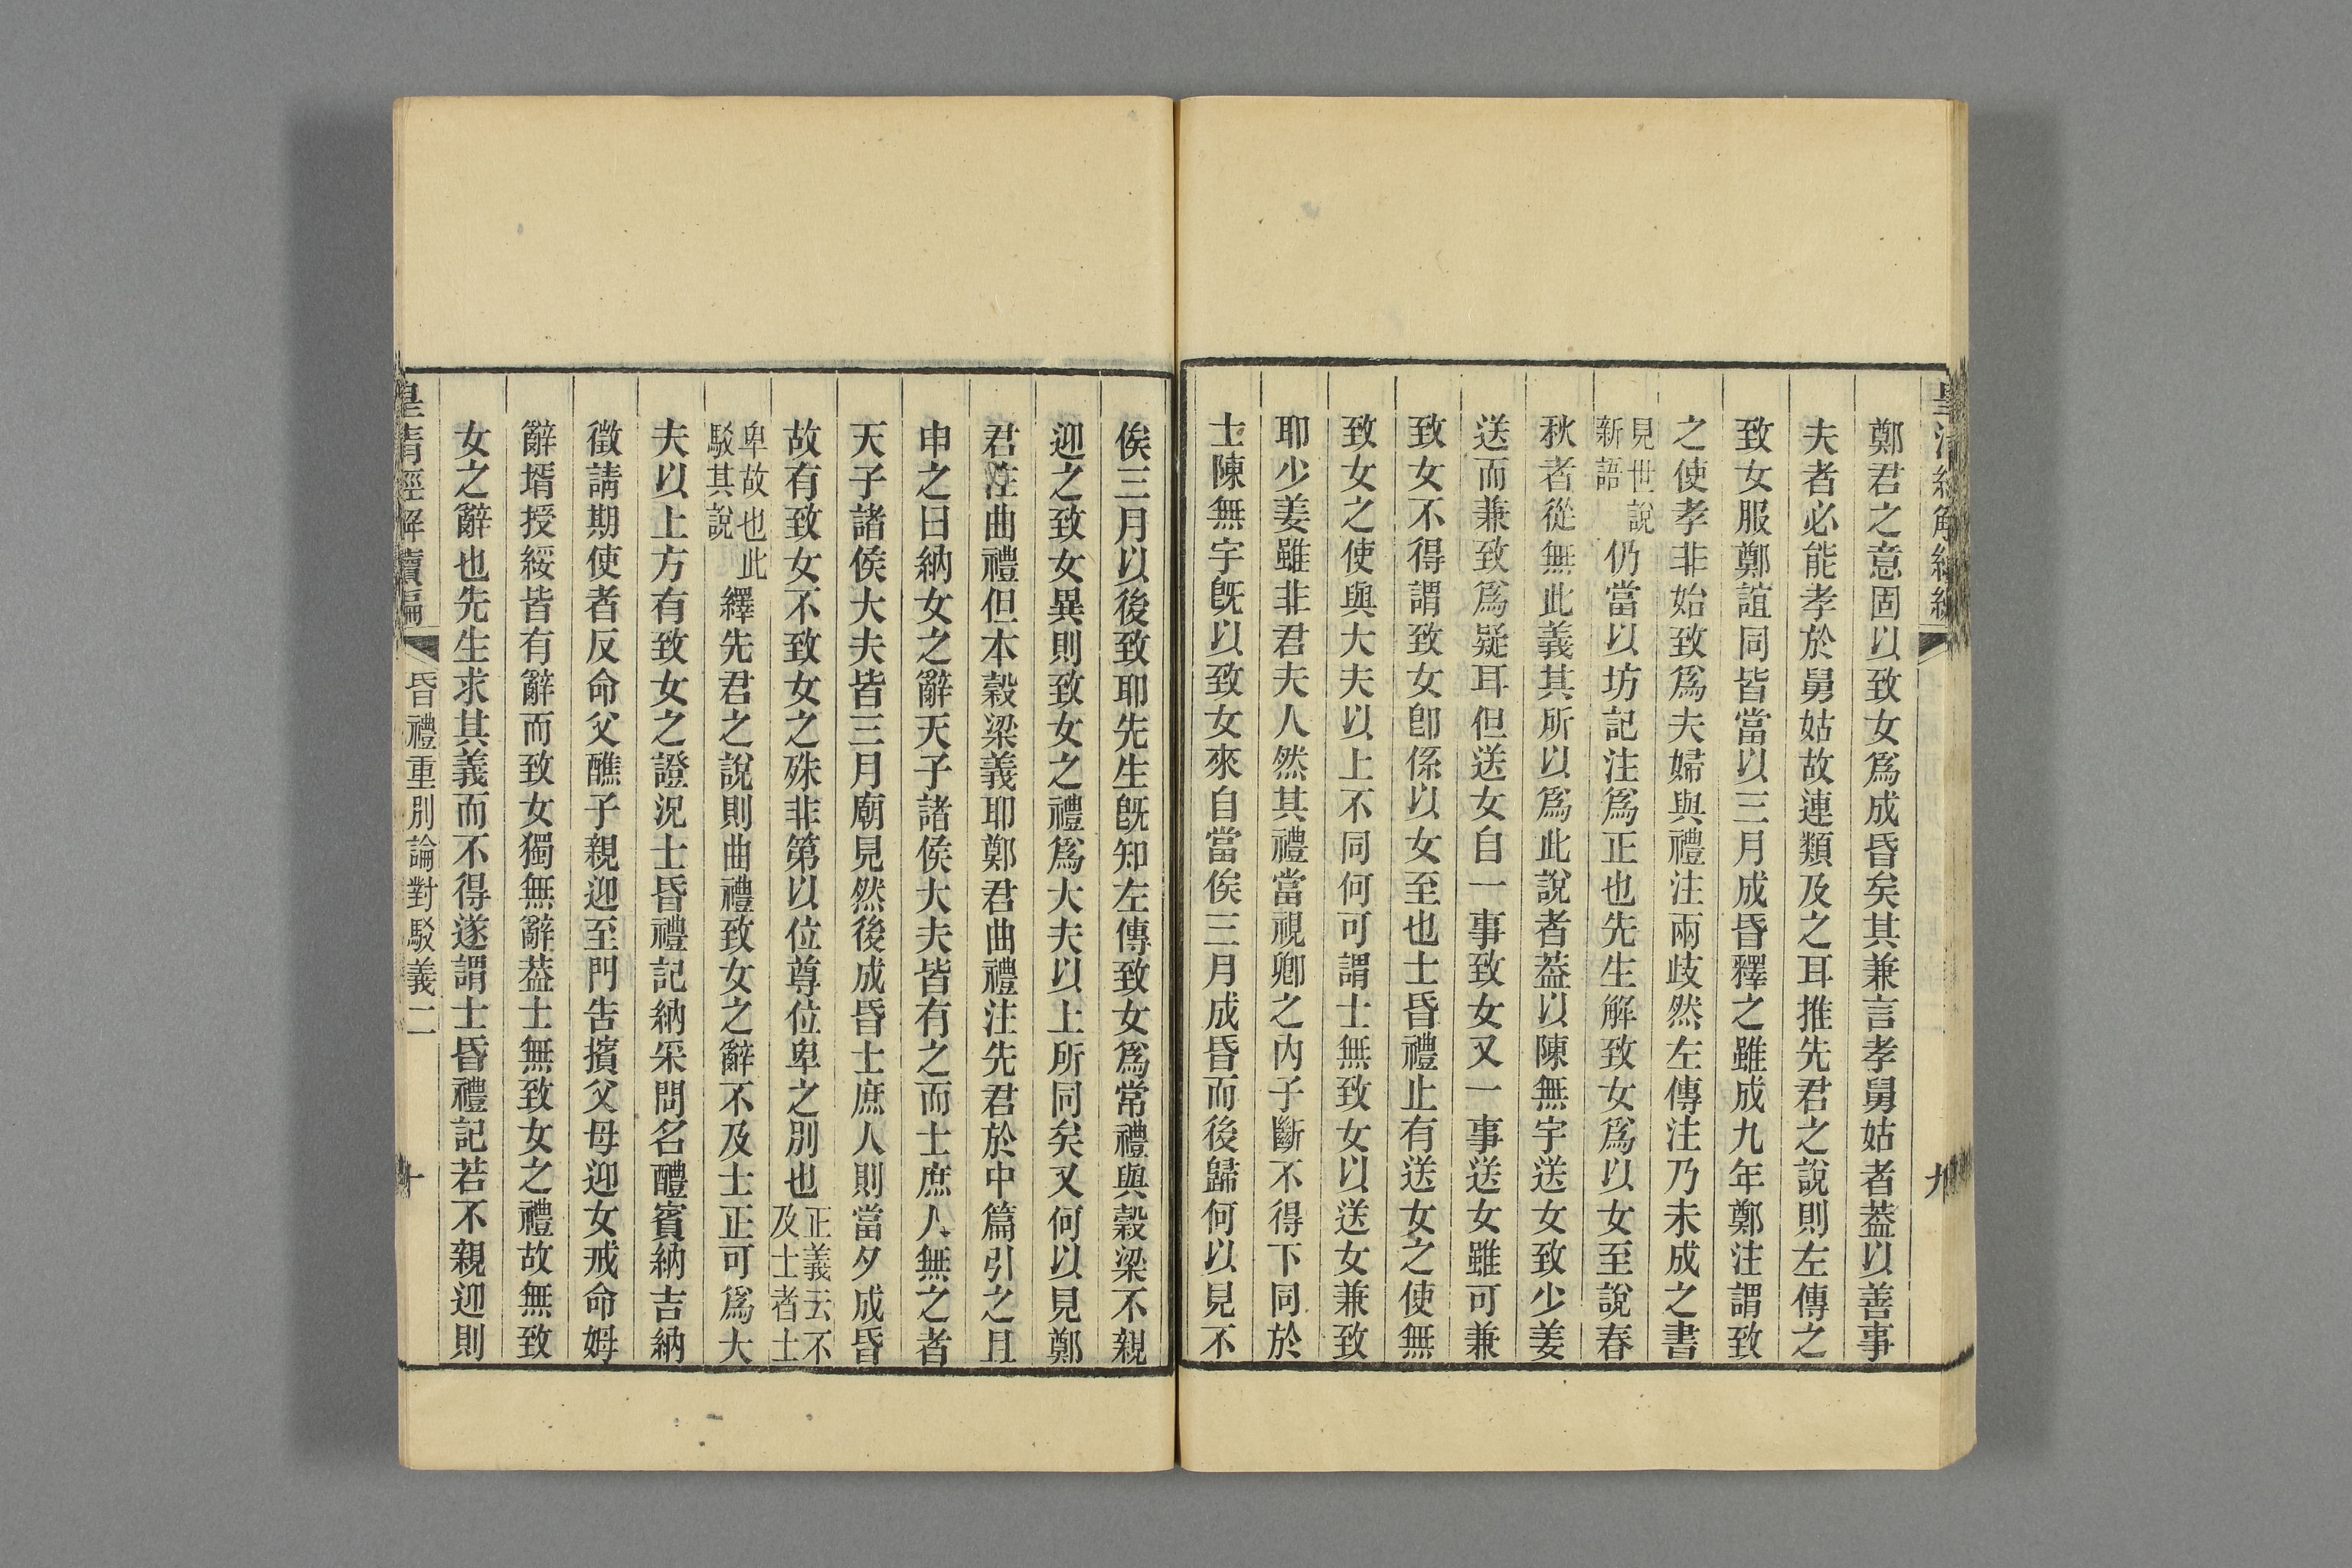 鄭君之意固以致女爲成昏矣其兼言孝舅姑者葢以善事
夫者必能孝於舅姑故連類及之耳推先君之說則左傳之
致女服鄭誼同皆當以三月成昏釋之雖成九年鄭注謂致
之使孝非始致爲夫婦與禮注兩歧然左傳注乃未成之書
見世說新語仍當以坊記注爲正也先生解致女爲以女至說春
秋者從無此義其所以爲此說者葢以陳無宇送女致少姜
送而兼致爲疑耳但送女自一事致女又一事送女雖可兼
致女不得謂致女卽係以女至也士昏禮止有送女之使無
致女之使與大夫以上不同何可謂士無致女以送女兼致
耶少姜雖非君夫人然其禮當視卿之內子斷不得下同於
士陳無宇旣以致女來自當俟三月成昏而後歸何以見不
俟三月以後致耶先生旣知左傳致女爲常禮與穀梁不親
迎之致女異則致女之禮爲大夫以上所同矣又何以見鄭
君注曲禮但本穀梁義耶鄭君曲禮注先君於中篇引之且
申之曰納女之辭天子諸侯大夫皆有之而士庶人無之者
天子諸侯大夫皆三月廟見然後成昏士庶人則當夕成昏
故有致女不致女之殊非第以位尊位卑之別也正義云不及士者士
卑故也此駁其說繹先君之說則曲禮致女之辭不及士正可爲大
夫以上方有致女之證況士昏禮記納采問名醴賓納吉納
徵請期使者反命父醮子親迎至門告擯父母迎女戒命姆
辭壻授綏皆有辭而致女獨無辭葢士無致女之禮故無致
女之辭也先生求其義而不得遂謂士昏禮記若不親迎則
皇清經解續編 昏禮重別論對駁義二 十